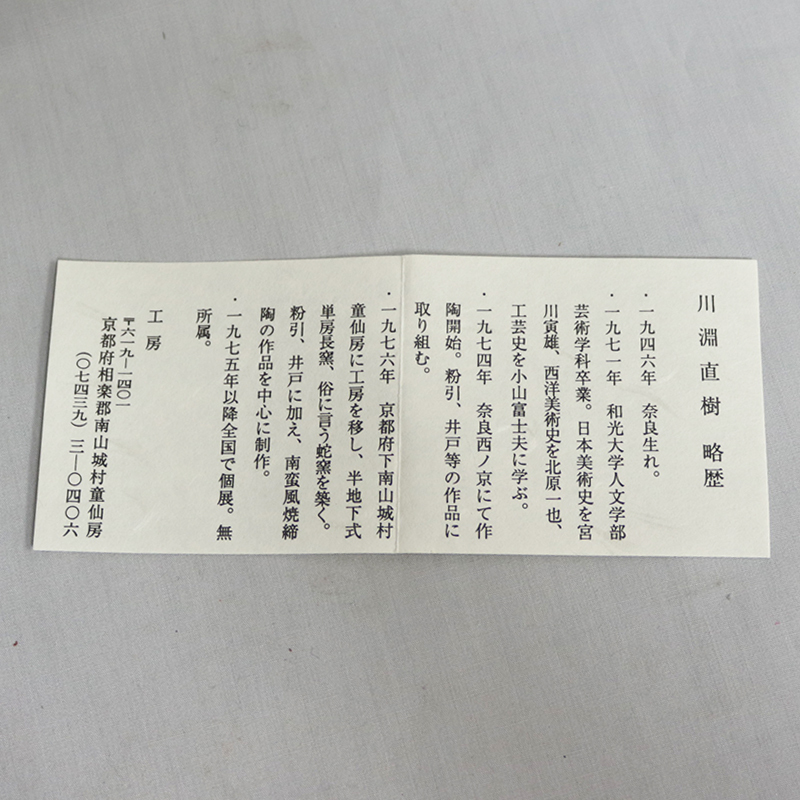 川淵直樹 略歴
・一九四六年 奈良生れ。
・一九七一年 和光大学人文学部
芸術学科卒業。日本美術史を宮
川寅雄、西洋美術史を北原一也、
工芸史を小山富士夫に学ぶ。
・一九七四年 奈良西ノ京にて作
陶開始。粉引、井戸等の作品に
取り組む。
・一九七六年 京都府下南山城村
童仙房に工房を移し、半地下式
単房長窯、俗に言う蛇窯を築く。
粉引、井戸に加え、南蛮風焼締
陶の作品を中心に制作。
・一九七五年以降全国で個展。無
所属。
工房
〒六一九―一四〇一
京都府相楽郡南山城村童仙房
(〇七四三九)三―〇四〇六